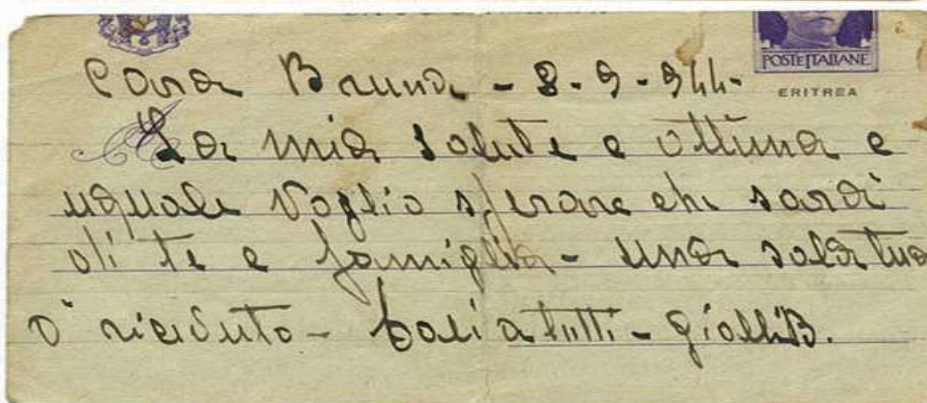 POSTE ITALIANE
ERITREA
Cara Bruna - 8-9-944-
La mia salute e ottima e
uguale voglio sperare che sarai
di te e famiglia - una sola tua
o' ricevuto - baci a tutti -